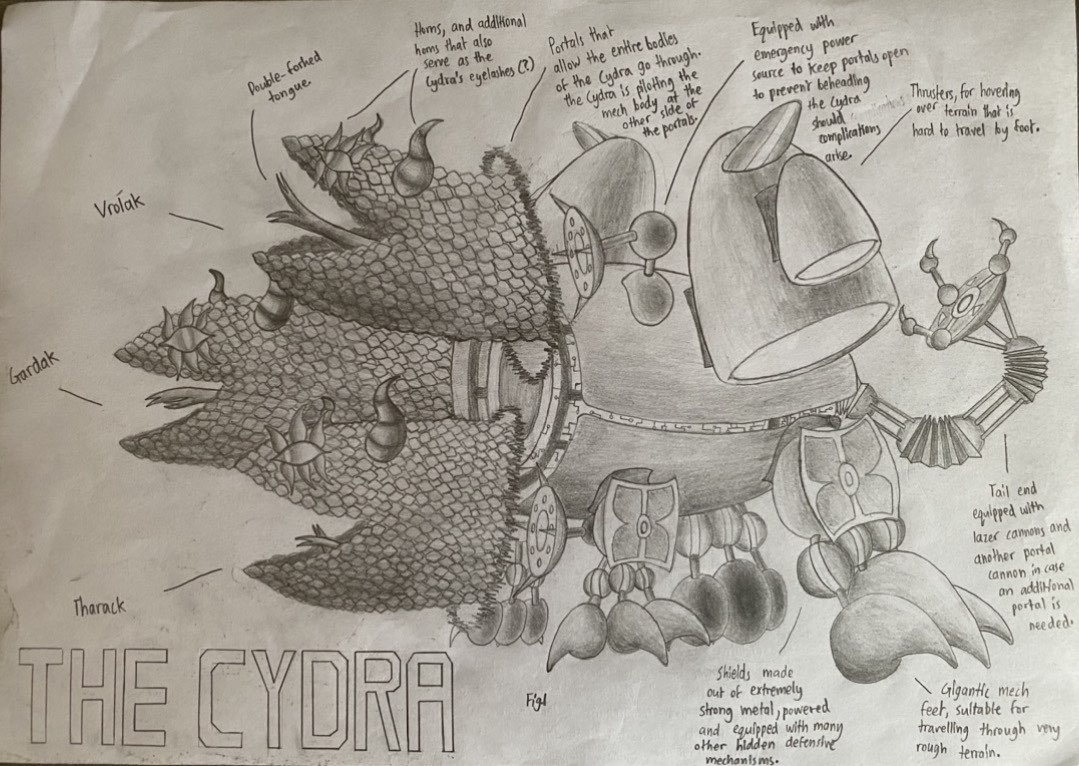 Double-forked
tongue.
Horns, and additional
horns that also
serve as the
Cydra's eyelashes (?)
Portals that
allow the entire bodies
of the Cydra go through.
the Cydra is piloting the
mech body at the
other side of
the portals.
Equipped with
emergency power
source to keep portals open
to prevent beheading
the Cydra
should
complications
arise.
Thrusters, for hovering
over terrain that is
hard to travel by foot.
Vrolak
Gardak
Tharack
Tail end
equipped with
lazer cannons and
another portal
cannon in case
an additional
portal is
needed.
Shields made
out of extremely
strong metal, powered
and equipped with many
other hidden defensive
mechanisms.
Gigantic mech
feet, suitable for
travelling through very
rough terrain.
Fig1
THE CYDRA